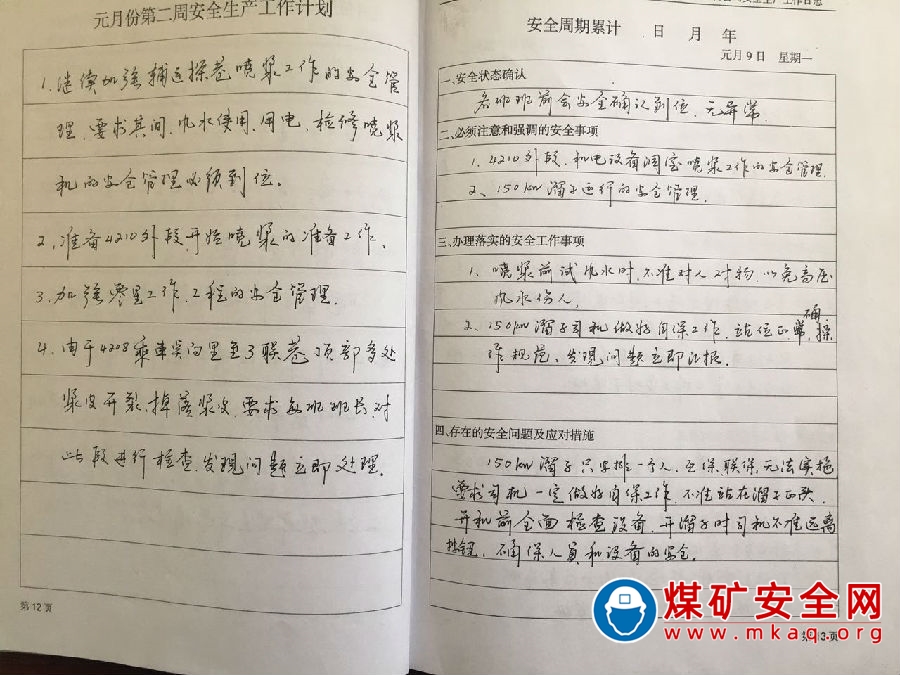 元月份第二周安全生产工作计划
1.继续加强辅运探巷喷浆工作的安全管
理,要求其间,风水使用,用电,检修喷浆
机的安全管理必须到位。
2.准备4210外段开始喷浆的准备工作。
3.加强零星工作、工程的安全管理.
4.由于4208乘车硐向里至3联巷顶部多处
浆皮开裂、掉落浆皮,要求每班班长对
此段进行检查,发现问题立即处理.
第12页
安全周期累计 日 月 年
元月9日 星期一
一、安全状态确认
各班班前会安全确认到位,无异常
二、必须注意和强调的安全事项
1. 4210外段、机电设备硐室喷浆工作的安全管理.
2、150kw溜子运行的安全管理.
三、办理落实的安全工作事项
1. 喷浆前试风水时,不准对人对物,以免高压
风水伤人,
2. 150kw溜子司机做好自保工作,站位正确,操
作规范、发现问题立即汇报.
四、存在的安全问题及应对措施
150kw溜子只安排一个人,互保联保,无法实施
要求司机一定做好自保工作,不准站在溜子正头.
开机前全面检查设备,开溜子时司机不准远离
按钮,确保人员和设备的安全。
煤矿安全网
www.mkaq.org